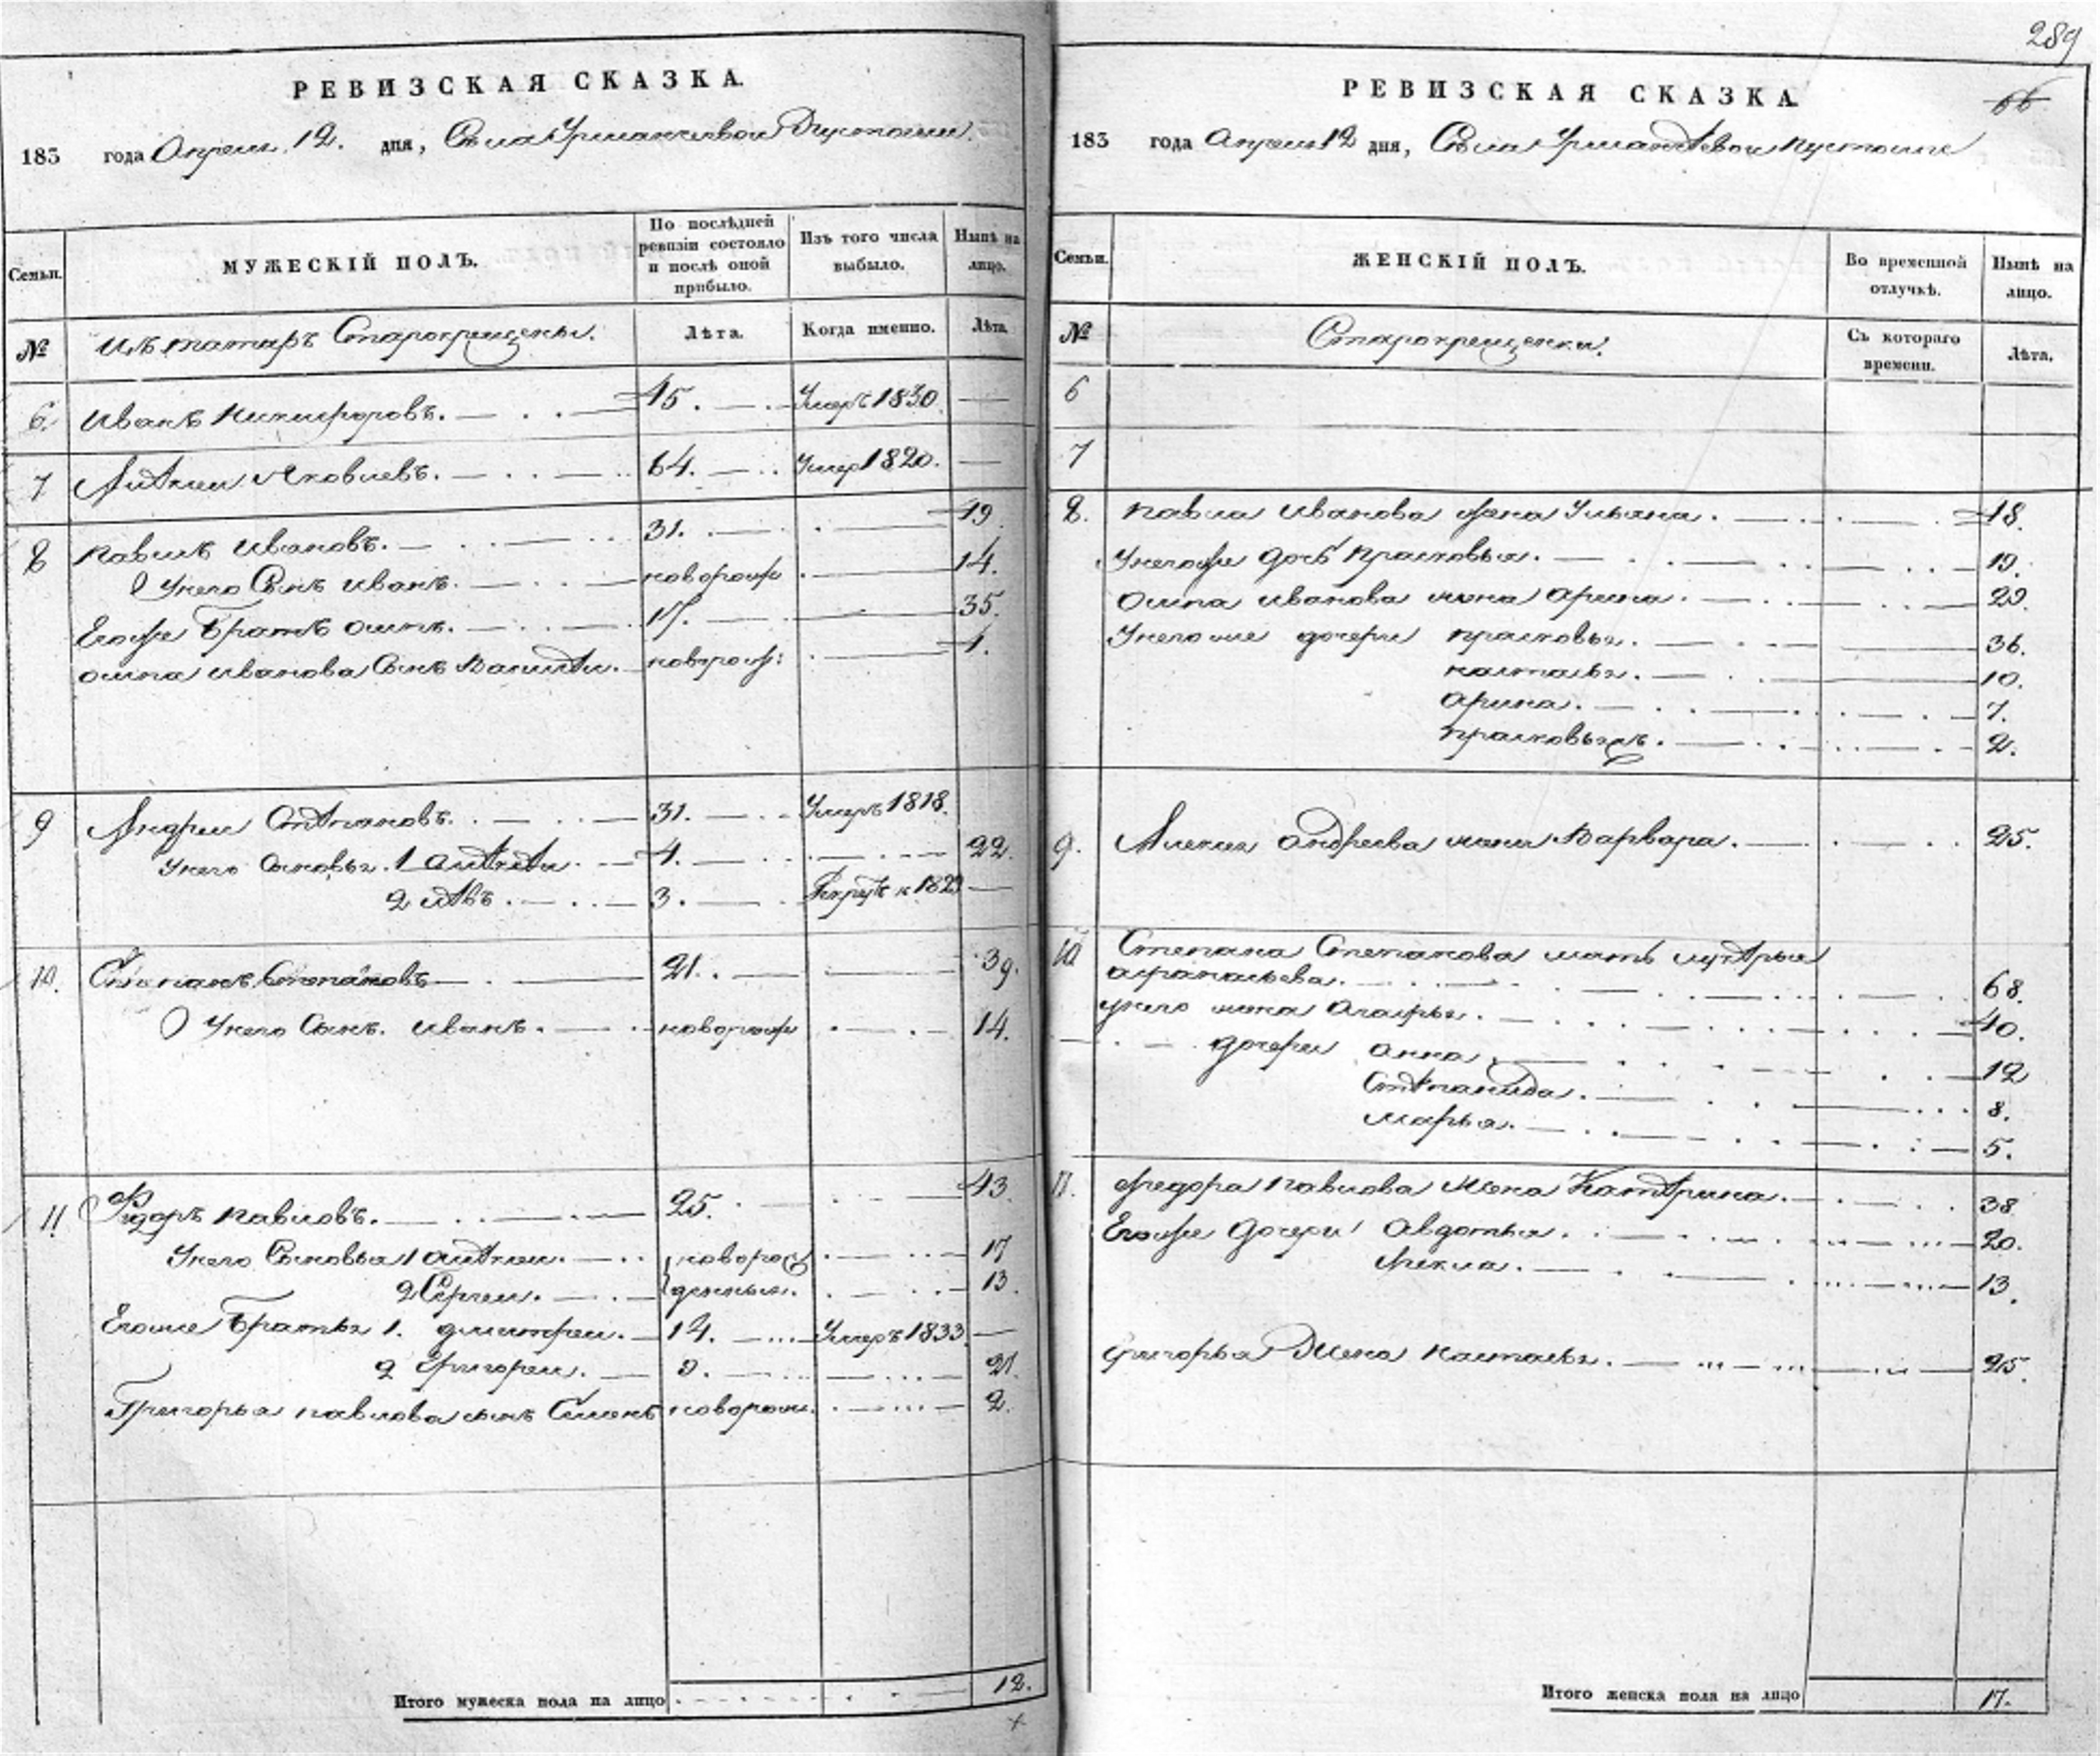 289
66
РЕВИЗСКАЯ СКАЗКА.
183 года Апреля 12. дня, Села Урманчеевой Пустоши.
Семьи.
МУЖЕСКІЙ ПОЛЪ.
По послѣдней ревизіи состояло и послѣ оной прибыло.
Изъ того числа выбыло.
Нынѣ на лицо.
№
Изъ татаръ Старокрещены.
Лѣта.
Когда именно.
Лѣта.
6. Иванъ Никифоровъ. 45. Умеръ 1830.
7 Алексѣи Яковлевъ. 64. Умер 1820.
8 Павилъ Ивановъ. 31. 49.
Унего Сынъ Иванъ. новорож 14.
Егоже Братъ Осипъ. 17. 35.
Осипа Иванова Сынъ Василѣи. новорож: 4.
9 Андреи Степановъ. 31. Умеръ 1818.
Унего Сыновья. 1 Алексѣи. 4. 22.
2 Левъ. 3. Рекрутъ 1829
10. Степанъ Степановъ 21. 39.
Унего Сынъ. Иванъ. новорож 14.
11 Федоръ Павловъ. 25. 43.
Унего Сыновья 1 Алексеи. новорож 17
2 Сергеи. денныя. 13.
Егоже Братья 1. Дмитреи. 14. Умеръ 1833
2 Григореи. 9. 27.
Григорья Павлова сынъ Семенъ новорож. 2.
Итого мужеска пола на лицо 12.
РЕВИЗСКАЯ СКАЗКА
183 года Апреля 12 дня, Села Урманчеевой Пустоши
Семьи.
ЖЕНСКІЙ ПОЛЪ.
Во временной отлучкѣ.
Нынѣ на лицо.
№
Старокрещенки.
Съ котораго времени.
Лѣта.
6
7
8. Павла Иванова жена Ульяна. 48.
Унегоже дочь Прасковья. 19.
Осипа Иванова жена Арина. 29.
Унегоже дочери Прасковья. 36.
Настасья. 10.
Арина. 7.
Прасковья. 2.
9. Алексея Андреева жена Варвара. 25.
10 Степана Степанова мать Лукерья
Афанасьева. 68.
унего жена Агафья. 40.
дочери Анна 12
Степанида. 8.
Марья. 5.
11. Федора Павлова Жена Катерина. 38
Егоже Дочери Авдотья. 20.
Фекла. 13.
Григорья Жена Настасья. 25.
Итого женска пола на лицо 17.